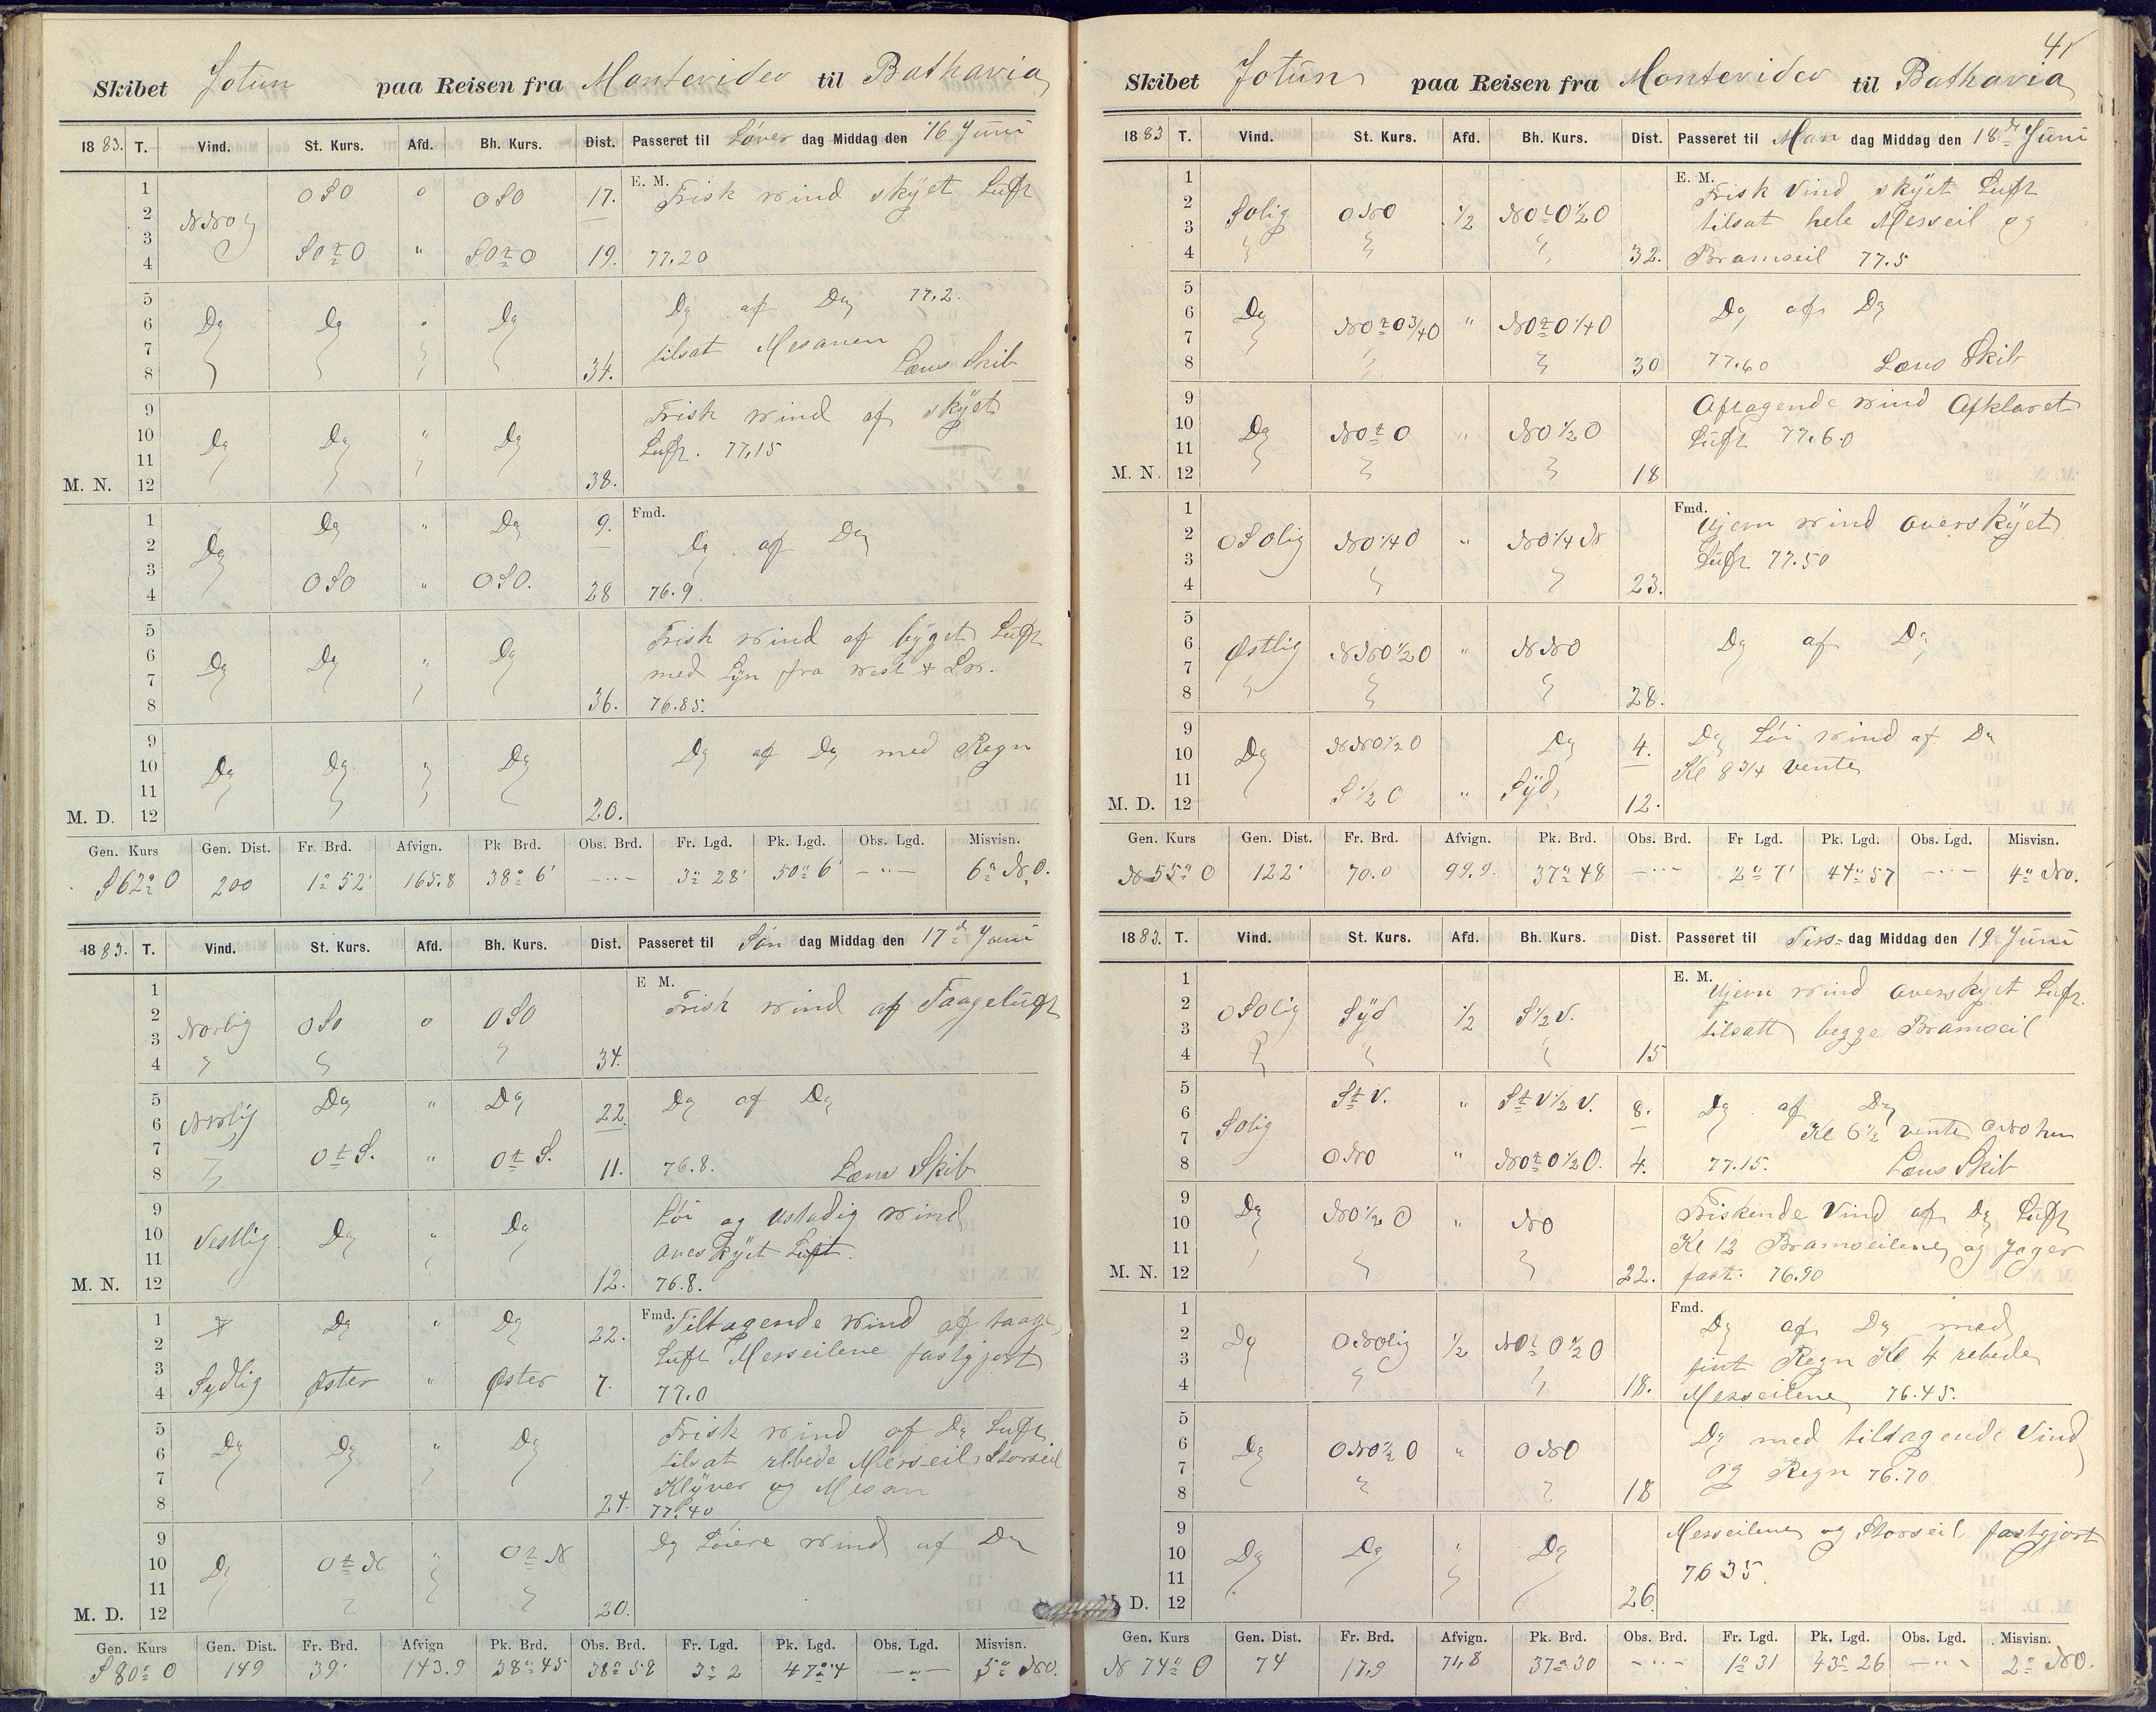 Skibet Jotun paa Reisen fra Montevideo til Bathavia
1883. T. Vind. St. Kurs. Afd. Bh. Kurs. Dist. Passeret til Löver dag Middag den 16 Juni
1 OSO o OSO 17. E. M. Frisk wind skÿet Luft
2 NNO
3
4 SOtO " SOtO 19. 77.20
5 Do af Do 77.2.
6 Do Do " Do
7 tilsat Mesanen
8 34. Læns Skib
9 Frisk wind af skÿet
10 Do Do " Do Luft. 77,15
11
M. N. 12 38.
1 Do " Do 9. Fmd.
2 Do Do af Do
3
4 OSO " OSO. 28 76.9
5 Frisk wind af bÿget Luft
6 Do Do " Do med Lÿn fra west
7
8 36. 76.85.
9 Do af Do med Regn
10 Do Do " Do
11
M. D. 12 20.
Gen. Kurs Gen. Dist. Fr. Brd. Afvign. Pk Brd. Obs. Brd. Fr. Lgd. Pk. Lgd. Obs. Lgd. Misvisn.
S62°O 200 1°52' 165.8 38°6' — 3°28' 50°6' — 6° NO.
1883. T. Vind. St. Kurs. Afd. Bh. Kurs. Dist. Passeret til Søn dag Middag den 17d Juni
1 E M.
2 Nordlig OSO o OSO Frisk wind af Taageluft
3
4 34.
5 Do " Do 22 Do af Do
6
7
8 OtS. " OtS. 11. 76.8. Læns Skib
9 Löi og ustadig wind
10 Vestlig Do " Do overskÿet Luft.
11
M. N. 12 12. 76.8.
1 Do " Do 22. Fmd. Tiltagende wind af taage
2 Luft Merseilene fastgjort
3
4 Sydlig Øster " Øster 7. 77.0
5 Frisk wind af Do Luft
6 Do Do " Do tilsat rebede Merseil, Storseil
7 Klÿver og Mesan
8 24. 77.40
9 Do Löiere wind af Do
10 Do OtN " OtN
11
M. D. 12 20.
Gen. Kurs Gen. Dist. Fr. Brd. Afvign Pk. Brd. Obs. Brd. Fr. Lgd. Pk. Lgd. Obs. Lgd. Misvisn.
S80°O 149 39' 143.9 38°45 38°58 3°2 47°4 — 5° NO.
41
Skibet Jotun paa Reisen fra Montevideo til Bathavia
1883 T. Vind. St. Kurs. Afd. Bh. Kurs. Dist. Passeret til Man dag Middag den 18d Juni
1 E. M. Frisk Vind skÿet Luft
2 Solig ONO 1/2 NOtO1/2O tilsat hele Merseil og
3
4 32. Bramseil 77.5
5
6 Do NOtO3/4O " NOtO1/4O Do af Do
7
8 30 77.60 Læns Skib
9 Aftagende wind Afklaret
10 Do NOtO " NO1/2O Luft 77.60
11
M. N. 12 18
1 Fmd. Ujevn wind overskÿet
2 OSOlig NO1/4O " NO1/4N Luft 77.50
3
4 23.
5
6 Østlig NNO1/2O " NNO Do af Do
7
8 28.
9 NNO1/2O Do 4. Do Löi wind af Do
10 Do Kl 8 3/4 vente
11
M. D. 12 S1/2O " Sÿd 12.
Gen. Kurs Gen. Dist. Fr. Brd. Afvign. Pk. Brd. Obs. Brd. Fr Lgd. Pk. Lgd. Obs. Lgd. Misvisn.
N55°O 122' 70.0 99.9. 37°48 — 2°7' 44°57 — 4° NO.
1883. T. Vind. St. Kurs. Afd. Bh. Kurs. Dist. Passeret til Tirs- dag Middag den 19 Juni
1 E. M. Ujevn wind overskÿet Luft.
2 OSOlig Sÿd 1/2 S1/2V. tilsatt begge Bramseil
3
4 15
5 StV. " StV1/2V. 8. Do af Do
6 Solig Kl 6 1/2 vente
7
8 ONO " NOtO1/2O. 4. 77.15. Læns Skib
9 Do NO1/2O " NO Friskende Vind af Do Luft
10 Kl 12 Bramseilene og Jager
11
M. N. 12 22. fast. 76.90
1 Fmd. Do af Do med
2 Do ONOlig 1/2 NOtO1/2O fint Regn Kl 4 rebede
3
4 18. Merseilene 76.45.
5 Do med tiltagende Vind
6 Do ONO1/2O " ONO og Regn 76.70
7
8 18
9 Merseilene og Storseil fastgjort
10 Do Do " Do 76 35.
11
D. 12 26.
Gen. Kurs Gen. Dist. Fr. Brd. Afvign. Pk. Brd. Obs. Brd. Fr. Lgd. Pk. Lgd. Obs. Lgd. Misvisn.
N74°O 74 17,9 71,8 37°30 — 1°31 43°26 — 2° NO.